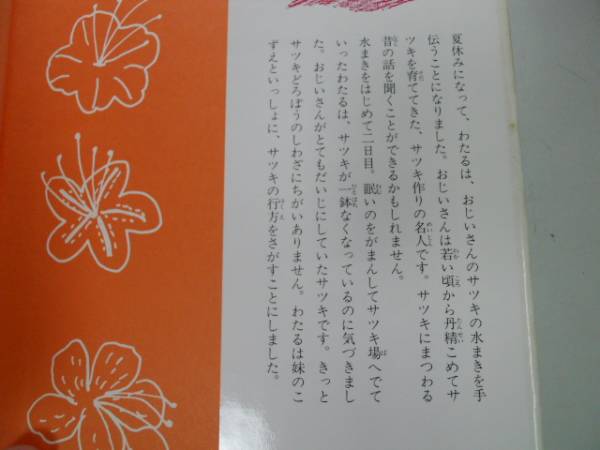 夏休みになって、わたるは、おじいさんのサツキの水まきを手
伝うことになりました。おじいさんは若い頃から丹精こめてサ
ツキを育ててきた、サツキ作りの名人です。サツキにまつわる
昔の話を聞くことができるかもしれません。
水まきをはじめて二日目。眠いのをがまんしてサツキ場へでて
いったわたるは、サツキが一鉢なくなっているのに気づきまし
た。おじいさんがとてもだいじにしていたサツキです。きっと
サツキどろぼうのしわざにちがいありません。わたるは妹のこ
ずえといっしょに、サツキの行方をさがすことにしました。